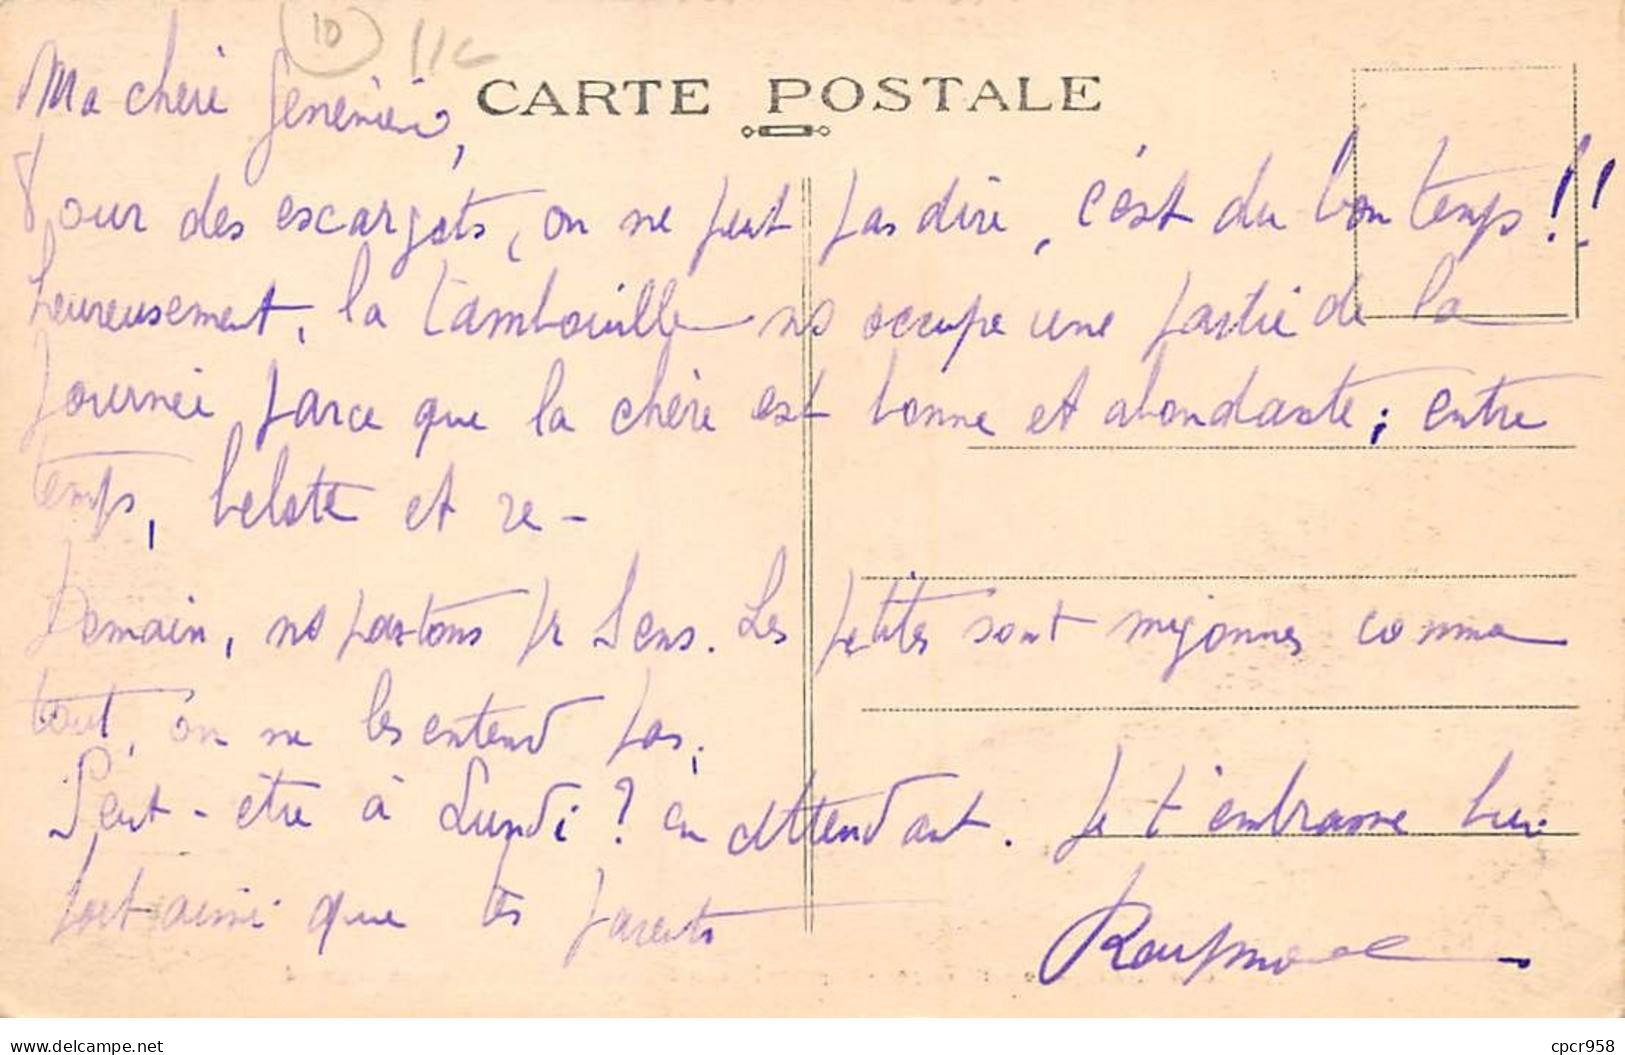 10
CARTE POSTALE
Ma chère Geneviève,
Pour des escargots, on ne peut pas dire, c'est du bon temps !!
heureusement, la tambouille ns occupe une partie de la
journée parce que la chère est bonne et abondante ; entre
temps, belote et re-
Demain, ns partons pr Sens. Les petites sont mignonnes comme
tout, on ne les entend pas.
Peut-être à Lundi ? en attendant. Je t'embrasse bien
fort ainsi que tes parents
Raymonde
delcampe.net
cpcr958